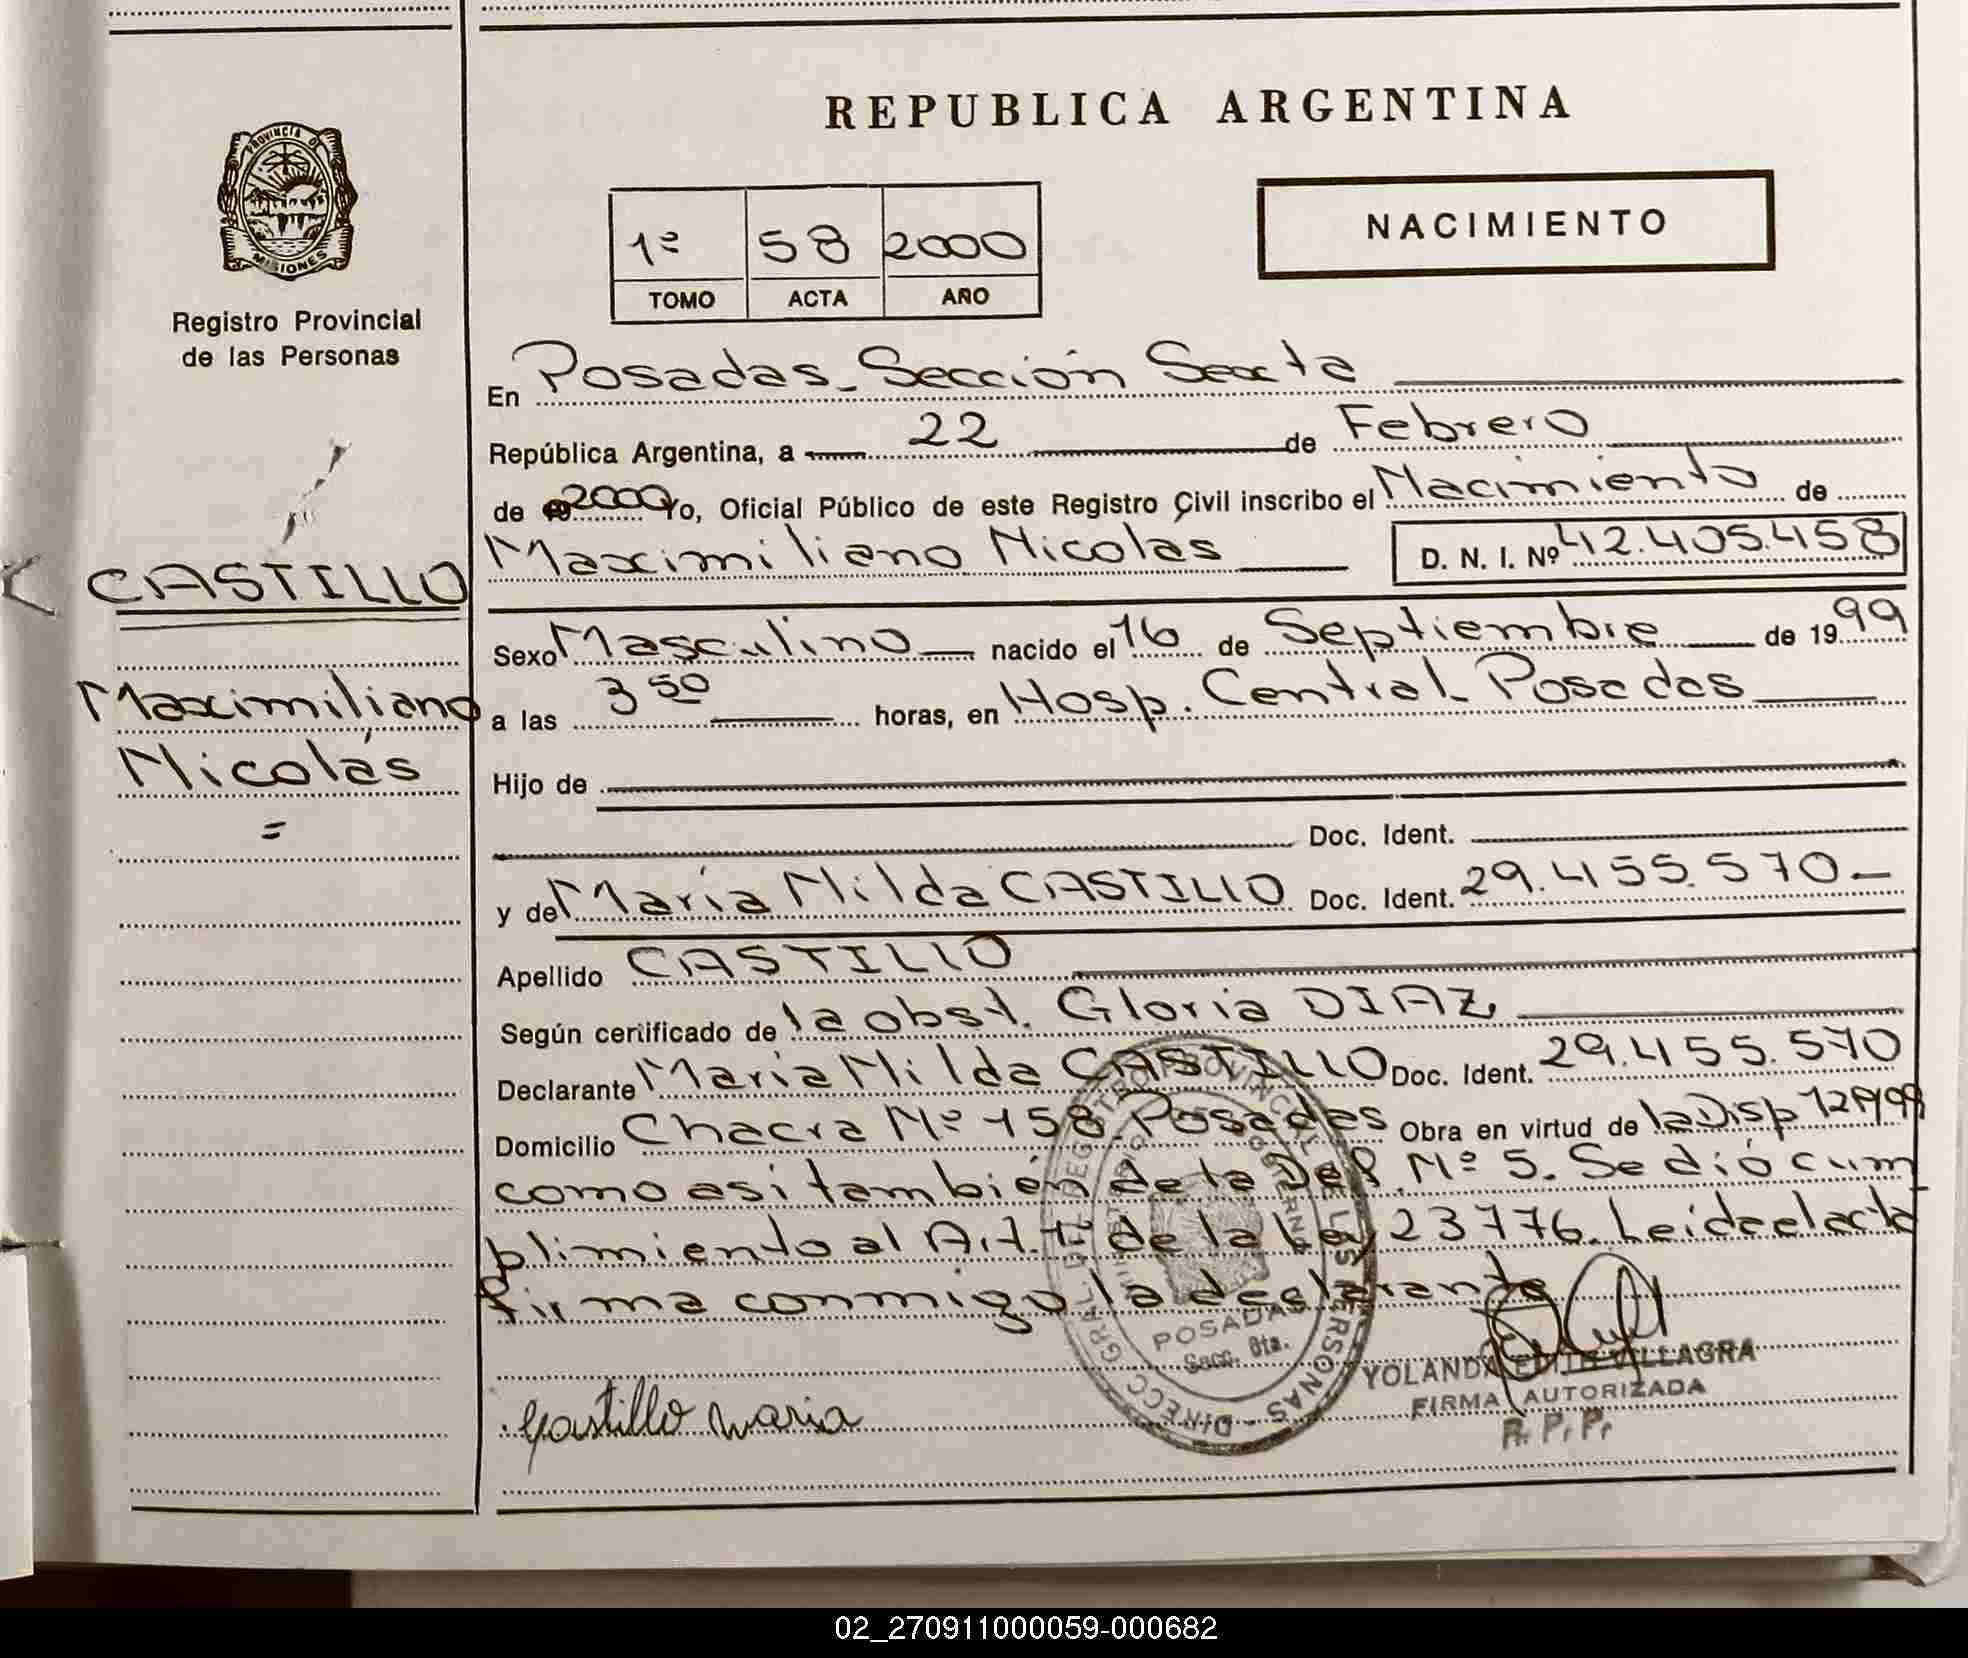 REPUBLICA ARGENTINA
PROVINCIA DE
MISIONES
Registro Provincial
de las Personas
1º 58 2000
TOMO ACTA AÑO
NACIMIENTO
En Posadas - Sección Sexta
República Argentina, a 22 de Febrero
de 2000 Yo, Oficial Público de este Registro Civil inscribo el Nacimiento de
Maximiliano Nicolas D. N. I. Nº 42.405.458
CASTILLO
Maximiliano
Nicolás
=
Sexo Masculino nacido el 16 de Septiembre de 1999
a las 3 50 horas, en Hosp. Central - Posadas
Hijo de
Doc. Ident.
y de Maria Nilda CASTILLO Doc. Ident. 29.455.570-
Apellido CASTILLO
Según certificado de la obst. Gloria DIAZ
Declarante Maria Nilda CASTILLO Doc. Ident. 29.455.570
Domicilio Chacra Nº 158 - Posadas Obra en virtud de la Disp
como asi también de la Del. Nº 5. Se dió cum
plimiento al Art. 1º de la Ley 23776. Leida el acta
firma conmigo la declarante
Castillo Maria
DIRECC. GRAL. DEL REGISTRO PROVINCIAL DE LAS PERSONAS
MINISTERIO GOBIERNO
POSADAS
Secc. 6ta.
YOLANDA EDITH VILLAGRA
FIRMA AUTORIZADA
R. P. P.
02_270911000059-000682